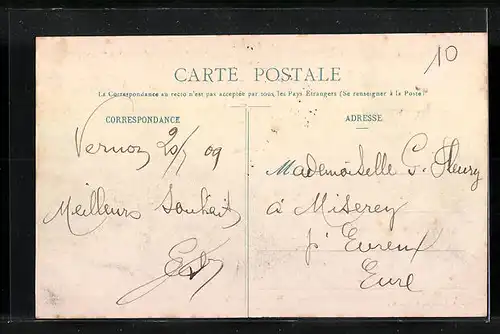 10
CARTE POSTALE
La Correspondance au recto n'est pas acceptée par tous les Pays Étrangers (Se renseigner à la Poste)
CORRESPONDANCE
ADRESSE
Vernon 20/7 09
Meilleurs Souhaits
Mademoiselle G. Fleury
à Miserey
p' Evreux
Eure